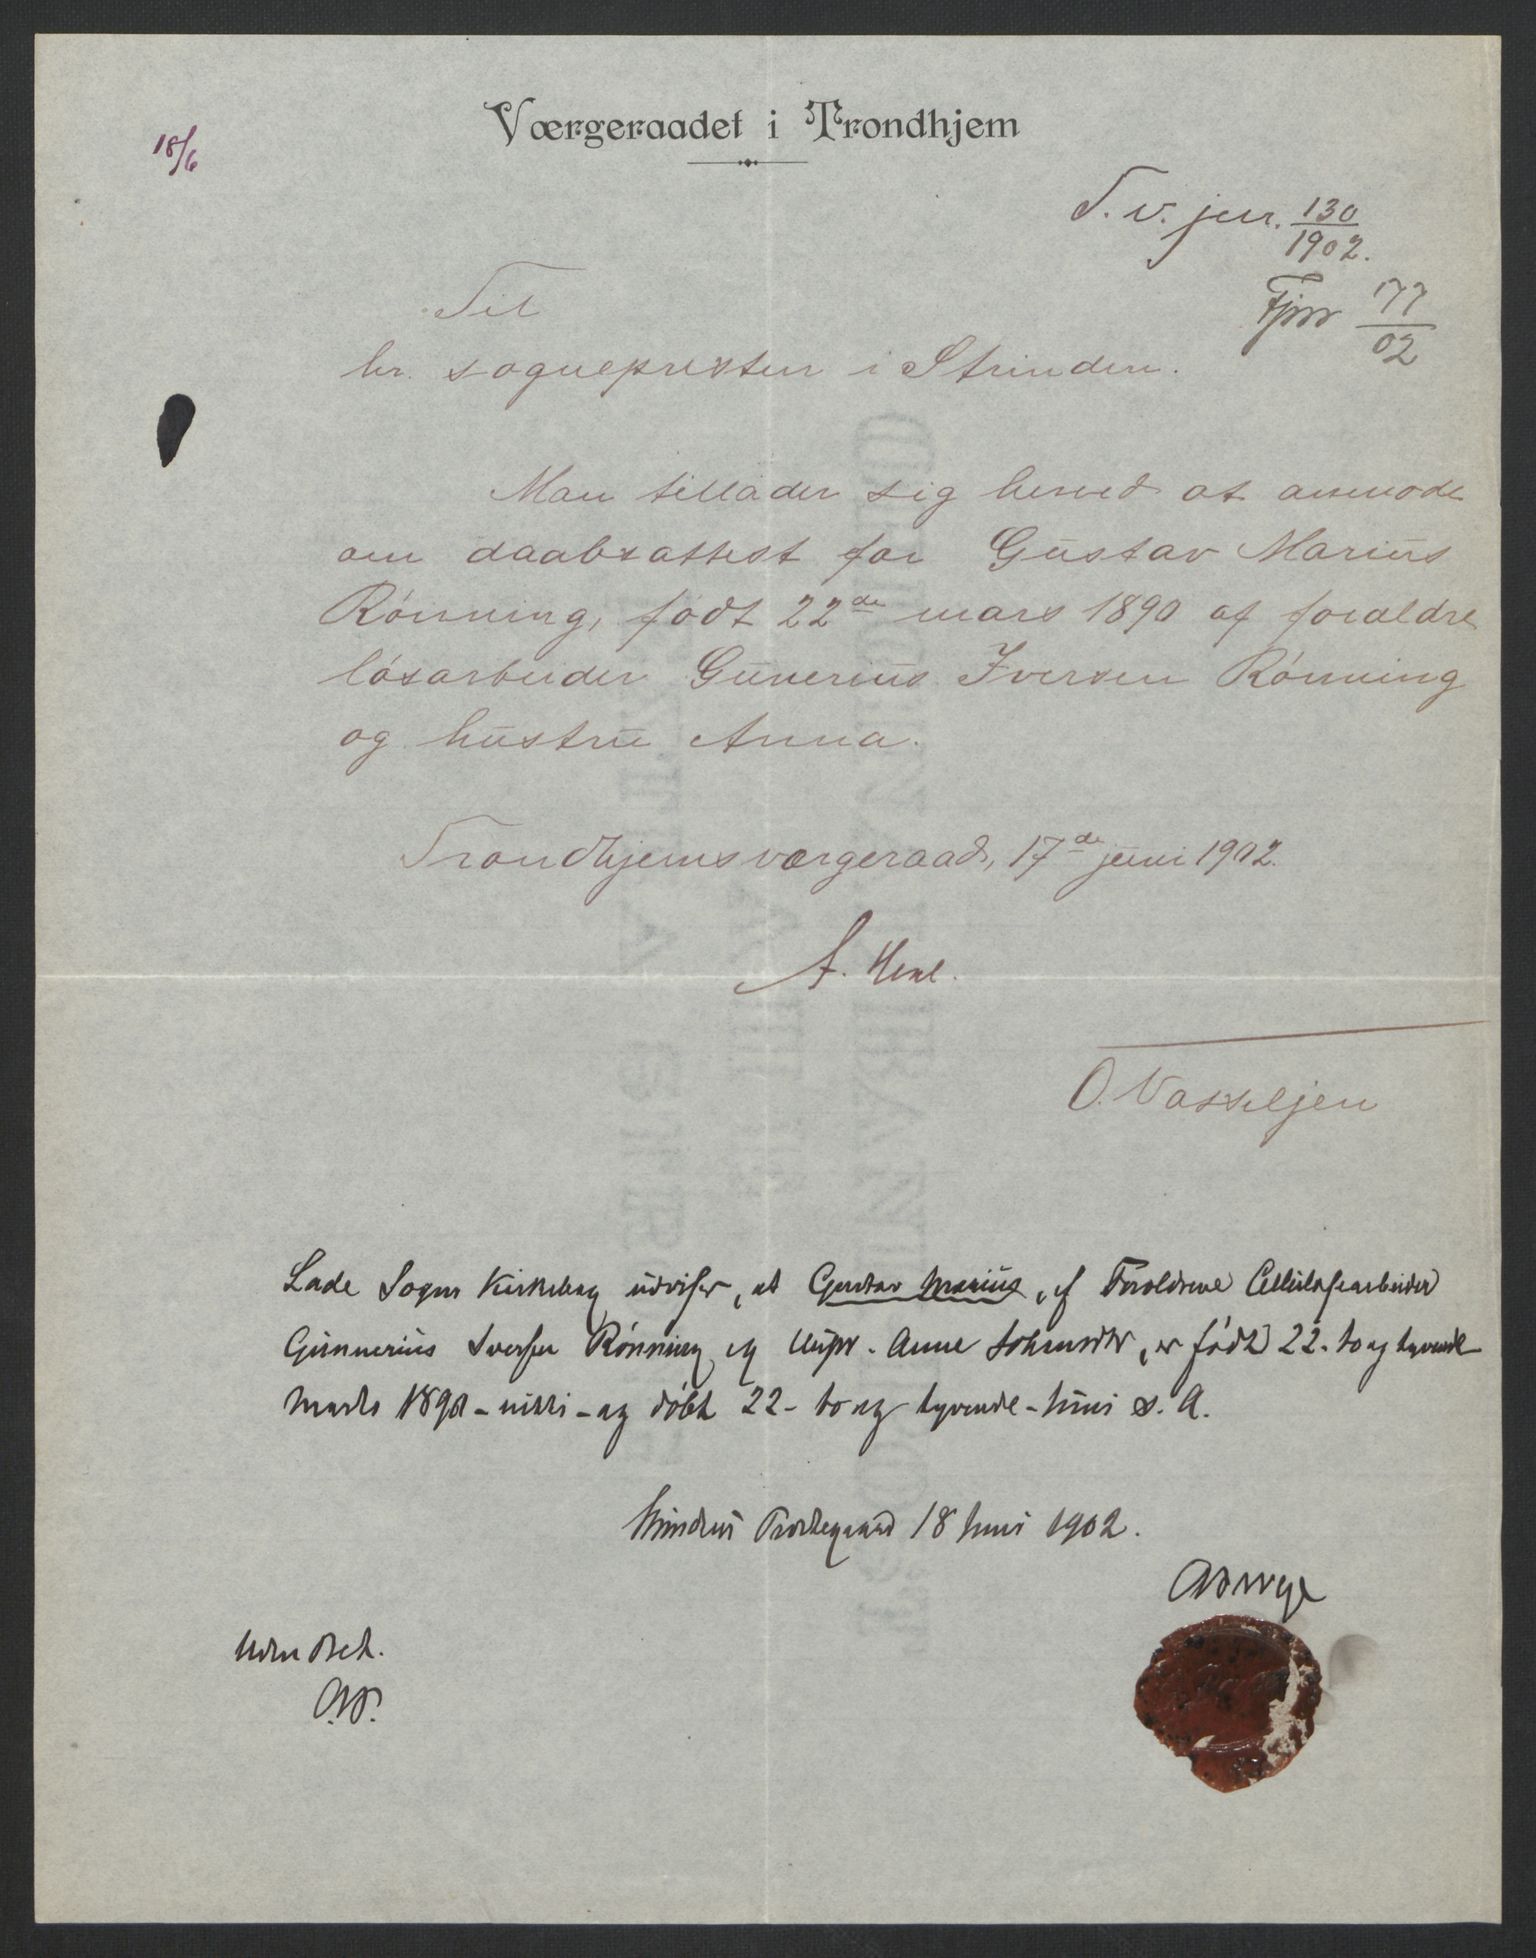 Værgeraadet i Trondhjem
18/6
T. v. jur. 130/1902.
Fjnr 77/02
Til
hr. sognepresten i Strinden.
Man tillader sig herved at anmode
om daabsattest for Gustav Marius
Rönning, födt 22de mars 1890 af forældre
lösarbeider Gunerius Iversen Rönning
og hustru Anna.
Trondhjems værgeraad, 17de juni 1902.
A.
O. Vasseljen
Lade Sogns Kirkebog udviser, at Gustav Marius, af Forældrene Cellulosearbeider
Gunnerius Iversen Rönning og Anne, er födt 22- to og tyvende
Marts 1890 - nitti - og döbt 22- to og tyvende - Juni s. A.
Strinden Prestegaard 18 Juni 1902.
Uden Bet.